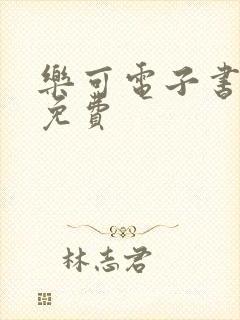 樂可電子書
免費
林志君